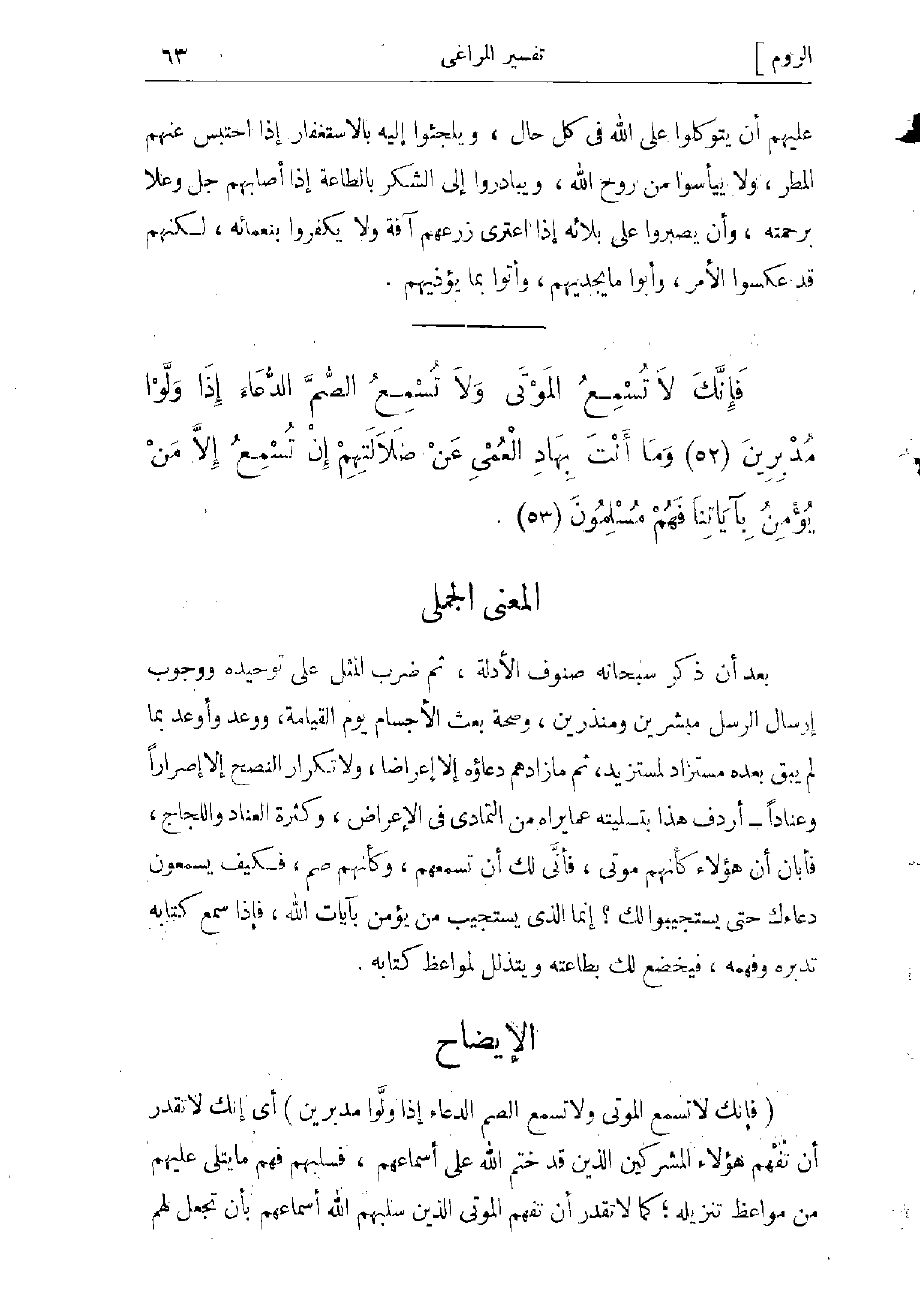 الروم ] تفسير المراغى ٦٣
عليهم أن يتوكلوا على الله فى كل حال ، ويلجئوا إليه بالاستغفار إذا احتبس عنهم
المطر ، ولا ييأسوا من روح الله ، ويبادروا إلى الشكر بالطاعة إذا أصابهم جل وعلا
برحمته ، وأن يصبروا على بلائه إذا اعترى زرعهم آفة ولا يكفروا بنعمائه ، لكنهم
قد عكسوا الأمر ، وأبوا مايجديهم ، وأتوا بما يؤذيهم .
فَإِنَّكَ لاَ تُسْمِعُ المَوْتَى وَلاَ تُسْمِعُ الصُّمَّ الدُّعَاءَ إِذَا وَلَّوْا
مُدْبِرِينَ (٥٢) وَمَا أَنْتَ بِهَادِ الْعُمْىِ عَنْ ضَلَالَتِهِمْ إِنْ تُسْمِعُ إِلاَّ مَنْ
يُؤْمِنُ بِآيَاتِنَا فَهُمْ مُسْلِمُونَ (٥٣) .
المعنى الجملى
بعد أن ذكر سبحانه صنوف الأدلة ، ثم ضرب المثل على توحيده ووجوب
إرسال الرسل مبشرين ومنذرين ، وصحة بعث الأجسام يوم القيامة، ووعد وأوعد بما
لم يبق بعده مستزاد لمستزيد، ثم مازادهم دعاؤه إلا إعراضا ، ولاتكرار النصح إلا إصراراً
وعناداً ــ أردف هذا بتسليته عمايراه من التمادى فى الإعراض ، وكثرة العناد واللجاج ،
فأبان أن هؤلاء كأنهم موتى ، فأنَّى لك أن تسمعهم ، وكأنهم صم ، فكيف يسمعون
دعاءك حتى يستجيبوا لك ؟ إنما الذى يستجيب من يؤمن بآيات الله ، فإذا سمع كتابه
تدبره وفهمه ، فيخضع لك بطاعته ويتذلل لمواعظ كتابه .
الإيضاح
( فإنك لاتسمع الموتى ولاتسمع الصم الدعاء إذا ولَّوا مدبرين ) أى إنك لاتقدر
أن تُفْهم هؤلاء المشركين الذين قد ختم الله على أسماعهم ، فسلبهم فهم مايتلى عليهم
من مواعظ تنزيله ؛ كما لاتقدر أن تفهم الموتى الذين سلبهم الله أسماعهم بأن تجعل لهم